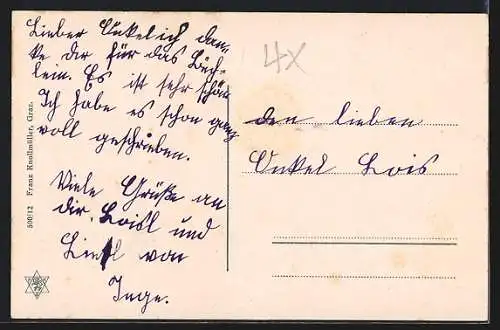 Lieber Onkel ich dan-
ke dir für das Büch-
lein. Es ist sehr schön
Ich habe es schon ganz
voll geschrieben.
Viele Grüße an
dir, Loisl und
von
Inge.
4X
den lieben
Onkel Lois
500/12 Franz Knollmüller, Graz.